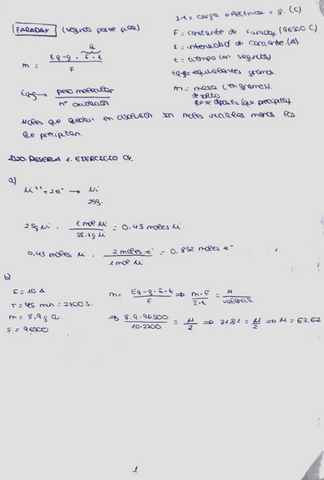 FARADAY (segunda parte pila)
m = Eq-g · I · t / F
Q
Eq-g = peso molecular / nº oxidación
I·t = carga eléctrica = Q (C)
F = constante de Faraday (96500 C)
I = intensidad de corriente (A)
t = tiempo (en segundos)
Eq-g = equivalentes gramo.
m = masa (en gramos)
que se deposita (que precipita)
Moles que quedan en disolución son moles iniciales menos los
que precipitan.
2020. RESERVA 1. EJERCICIO C4.
a)
Ni²⁺ + 2e⁻ → Ni
25g.
25g Ni · 1 mol Ni / 58,7g Ni = 0,43 moles Ni
0,43 moles Ni · 2 moles e⁻ / 1 mol Ni = 0,852 moles e⁻
b)
I = 10 A
T = 45 min = 2700 s.
m = 8,9 g
F = 96500
m = Eq-g · I · t / F ⇒ m·F / I·t = M / valencia
⇒ 8,9·96500 / 10·2700 = M/2 ⇒ 31,81 = M/2 ⇒ M = 63,62
1